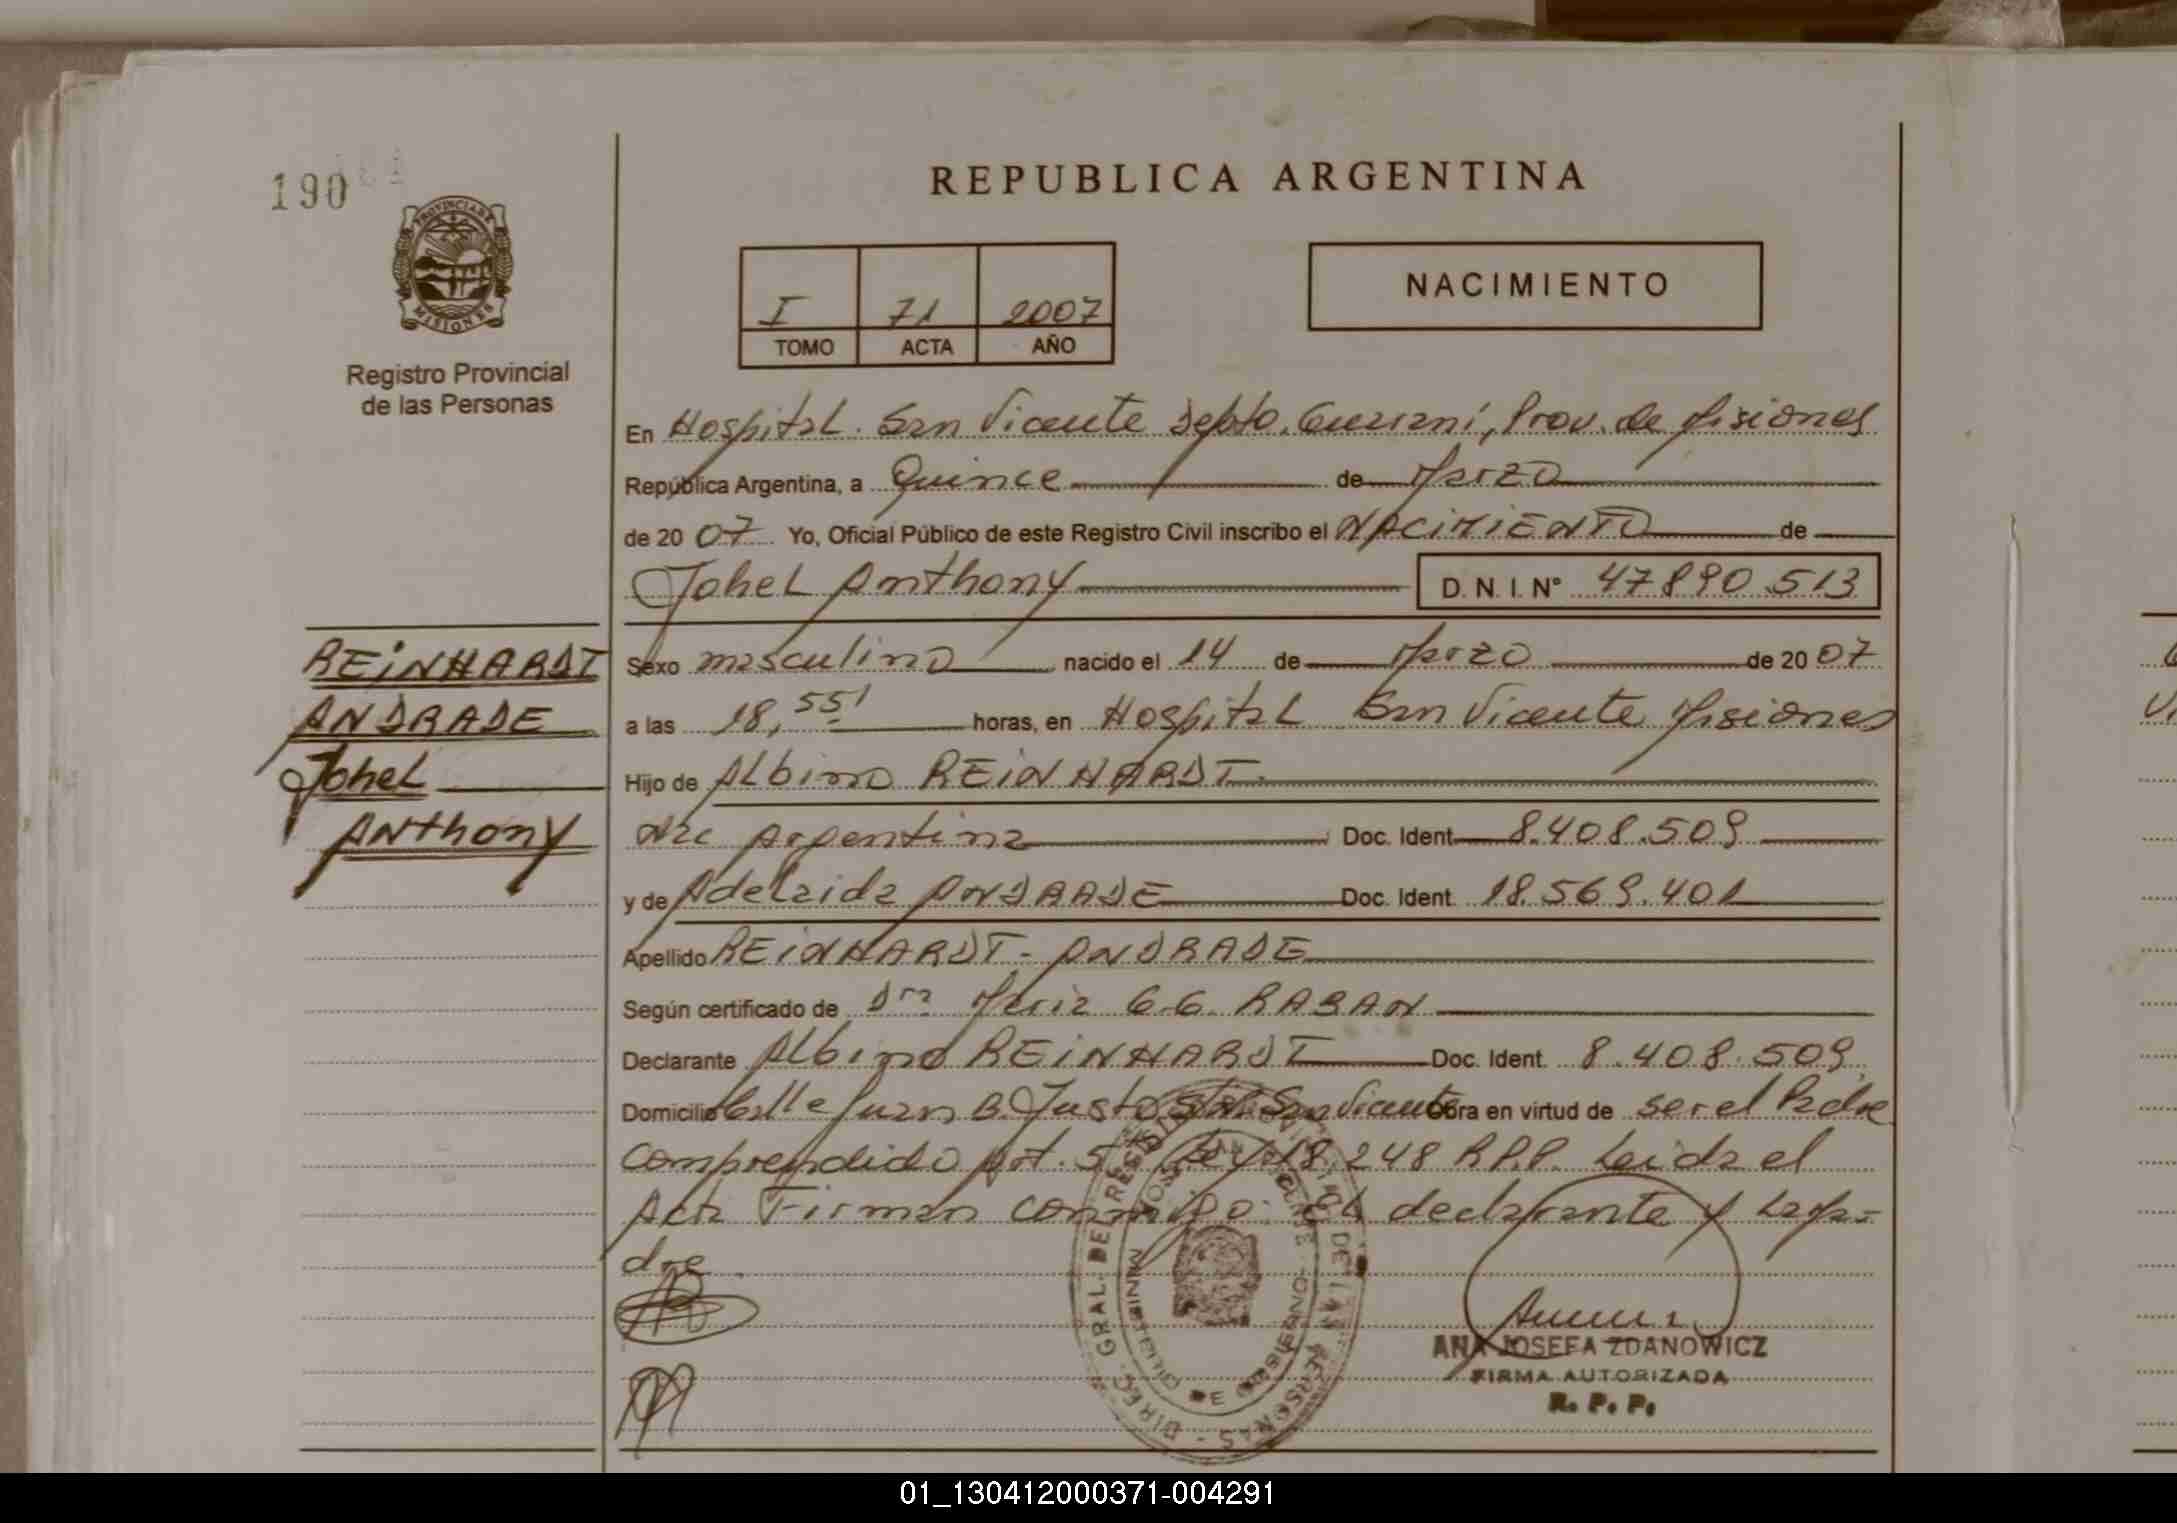 190
PROVINCIA DE
MISIONES
Registro Provincial
de las Personas
REPUBLICA ARGENTINA
I 71 2007
TOMO ACTA AÑO
NACIMIENTO
En Hospital. San Vicente Depto. Guaraní, Prov. de Misiones
República Argentina, a Quince de Marzo
de 20 07 Yo, Oficial Público de este Registro Civil inscribo el NACIMIENTO de
Johel Anthony D.N.I. N° 47890.513
REINHARDT
ANDRADE
Johel
Anthony
Sexo masculino nacido el 14 de Marzo de 20 07
a las 18,55' horas, en Hospital San Vicente Misiones
Hijo de Albino REINHARDT.
Nac Argentina Doc. Ident 8.408.509
y de Adelaida ANDRADE Doc. Ident. 18.569.401
Apellido REINHARDT - ANDRADE
Según certificado de Dra Maria G.G. RABAN
Declarante Albino REINHARDT Doc. Ident. 8.408.509
Domicilio Calle Juan B. Justo San Vicente Obra en virtud de ser el Padre
comprendido Art. 5 Ley 18.248 R.P.P. Leida el
Acta Firman conmigo: El declarante y la Ma-
dre.
DIREC. GRAL. DEL REGISTRO DE LAS PERSONAS
MINISTERIO DE GOBIERNO
ANA JOSEFA ZDANOWICZ
FIRMA AUTORIZADA
R. P. P.
01_130412000371-004291